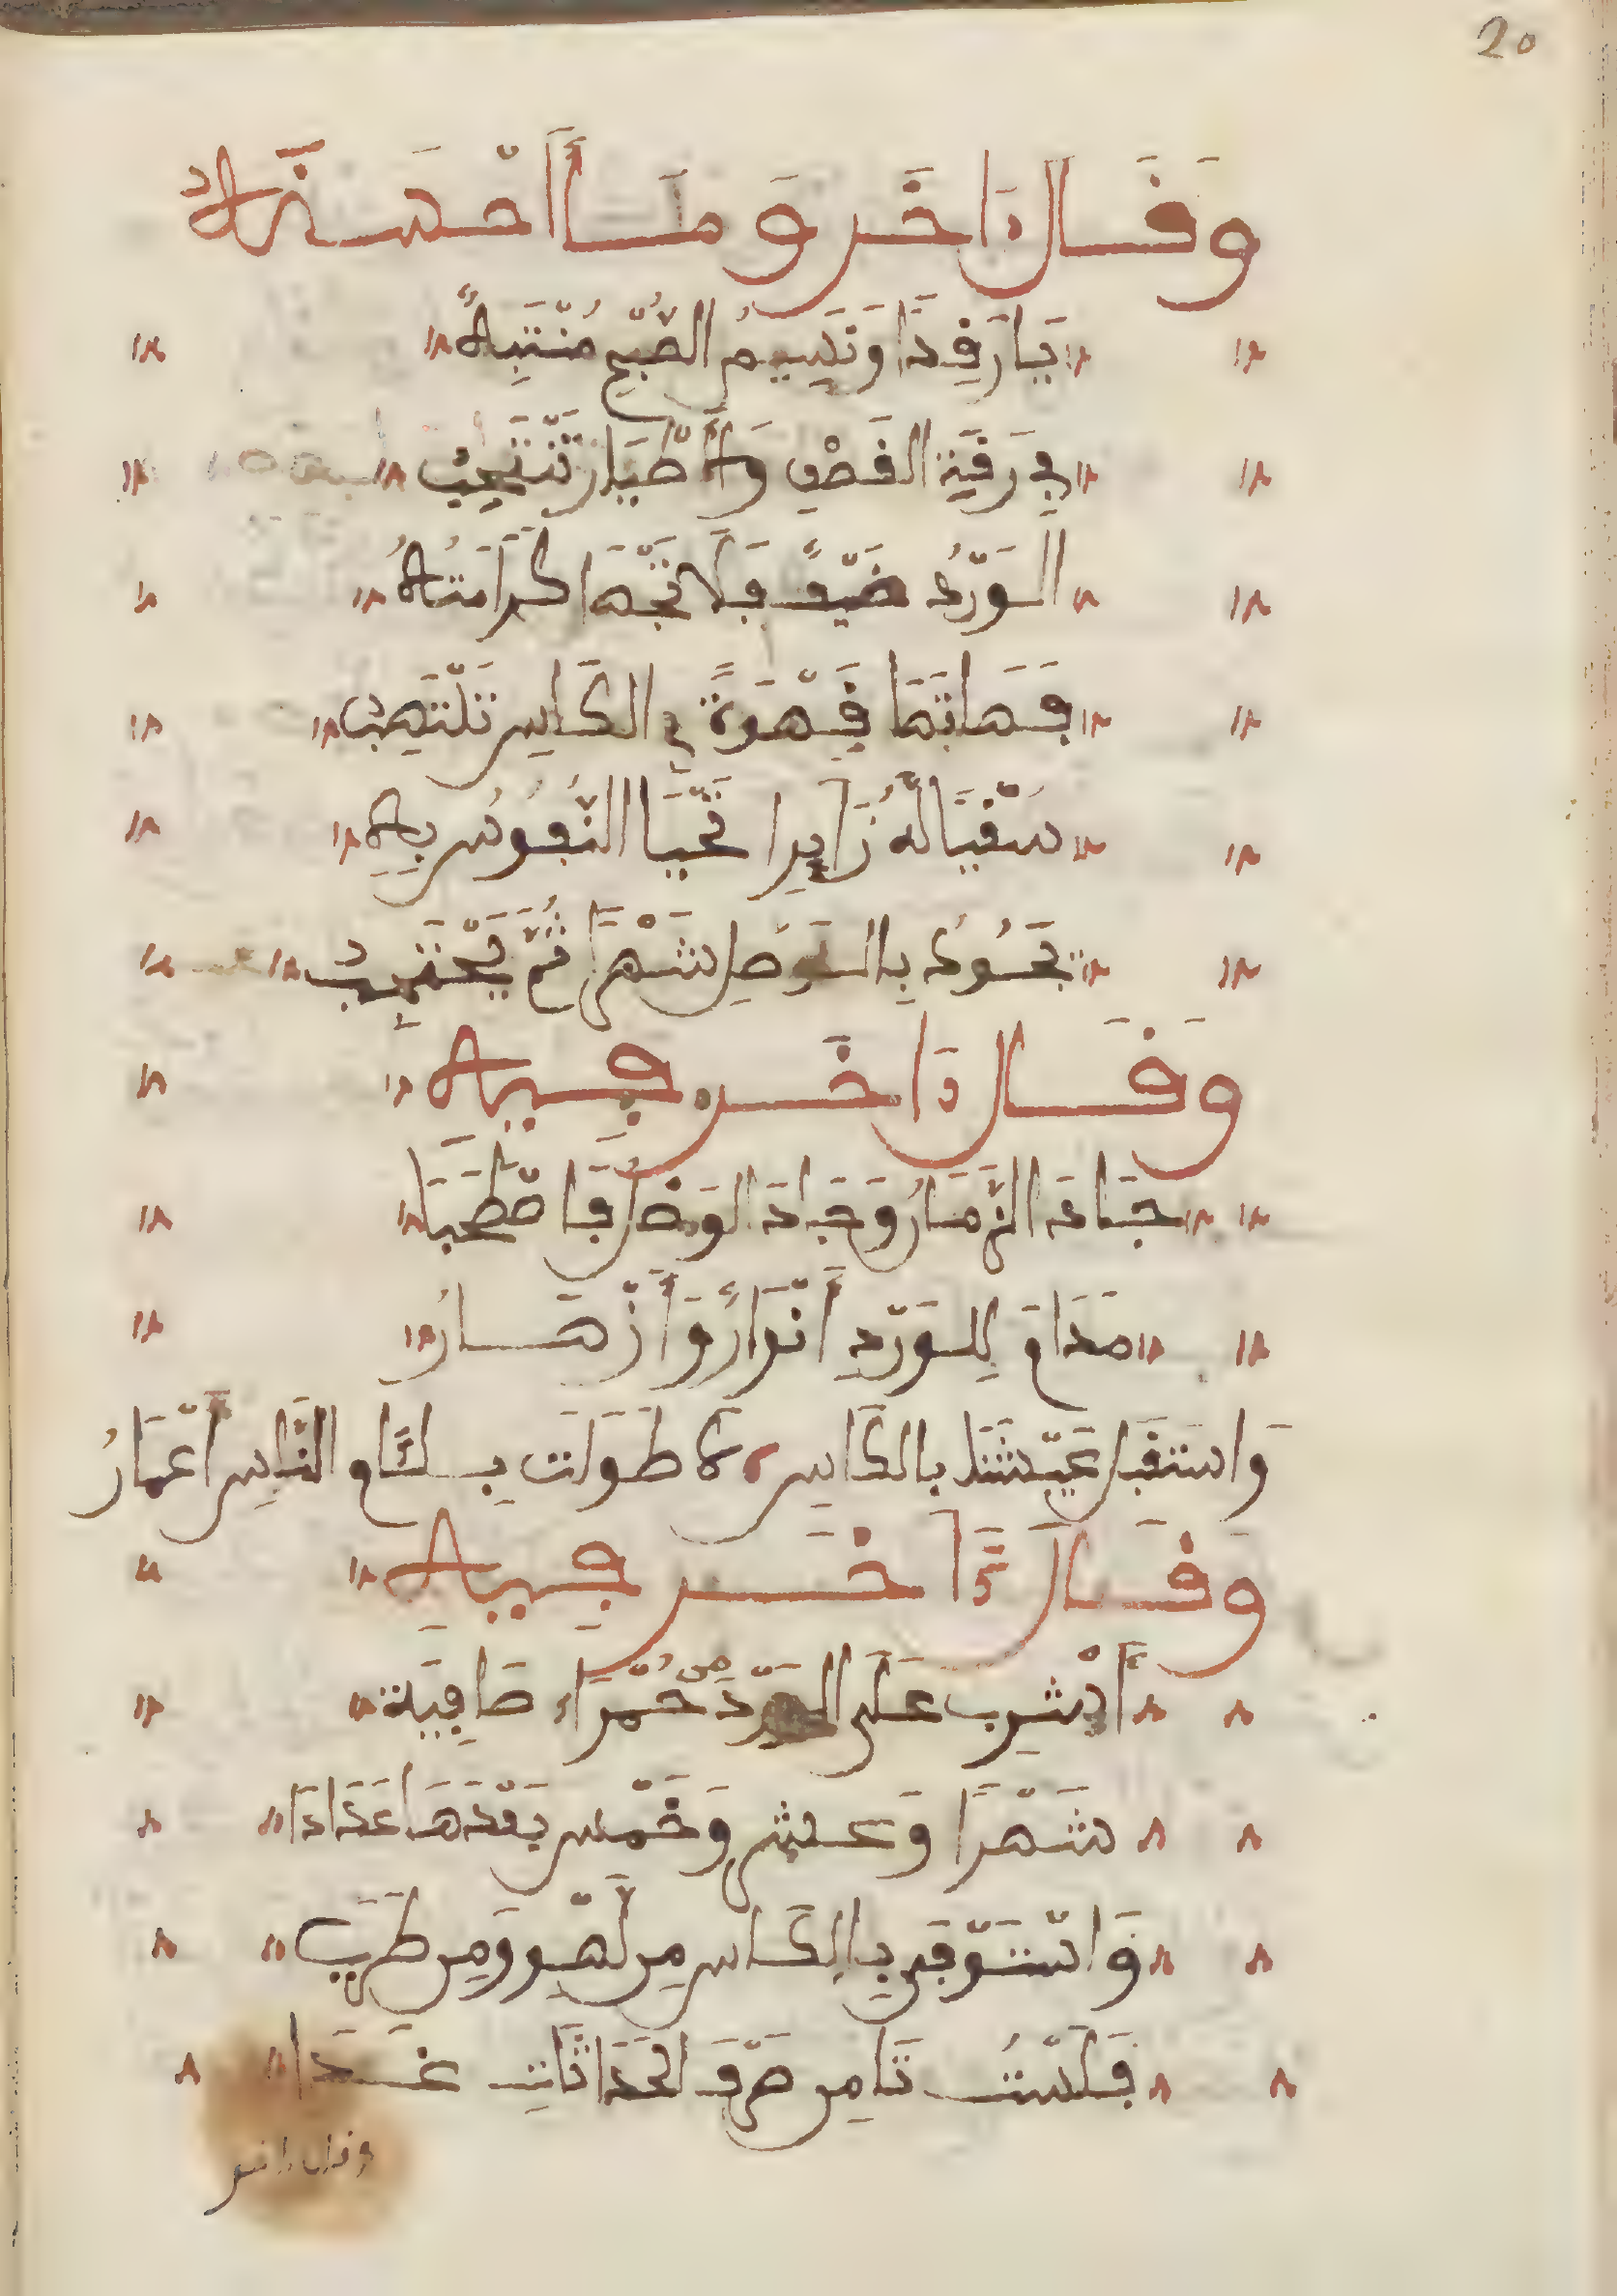 20
وَقَالَ ءَاخَر وَمَا أَحْسَنَهُ
يَا رَافِدًا وَنَسِيمُ الصُّبْحِ مُنْتَبِهٌ
فِي رَقَبَةِ الفَصْفِ وَالأَطْيَارُ تَنْتَحِبُ
الوَرْدُ ضَيْفٌ فَلَا تَجْهَل كَرَامَتُهُ
فَهَاتَهَا قَهْوَةً فِي الكَاسِ تَلْتَهِبُ
سَقْيًا لَهُ زَايِرًا تَحْيَا النُّفُوسُ بِهِ
يَجُودُ بِالوَصْلِ شَهْرًا ثُمَّ يَحْتَجِبُ
وَقَالَ ءَاخَر فِيهِ
جَادَ الزَّمَارُ وَجَادَ الوَصْلُ فَاصْطَحَبَا
مَدَامَ لِلوَرْدِ أَنْوَارٌ وَأَزْهَارُ
وَاسْتَقْبِل عَيْشَنَا بِالكَاسِ لَا طَوَلَتْ بِسلام النَّاسِ أَعْمَارُ
وَقَالَ ءَاخَر فِيهِ
أَشْرِب عَلَى الوَرْدِ مِن حُمْرَاء صَافِيَة
شَهْرًا وَعشر وَخَمْس بَعْدَهَا عَدَدَا
وَاسْتَوْفِ بِالكَاسِ مِن لَهْوٍ وَمِن طَرَبٍ
فَلَسْتُ تَامِن صَرْفَ الحَدَاثَاتِ غَدَا
وقال ءاخر